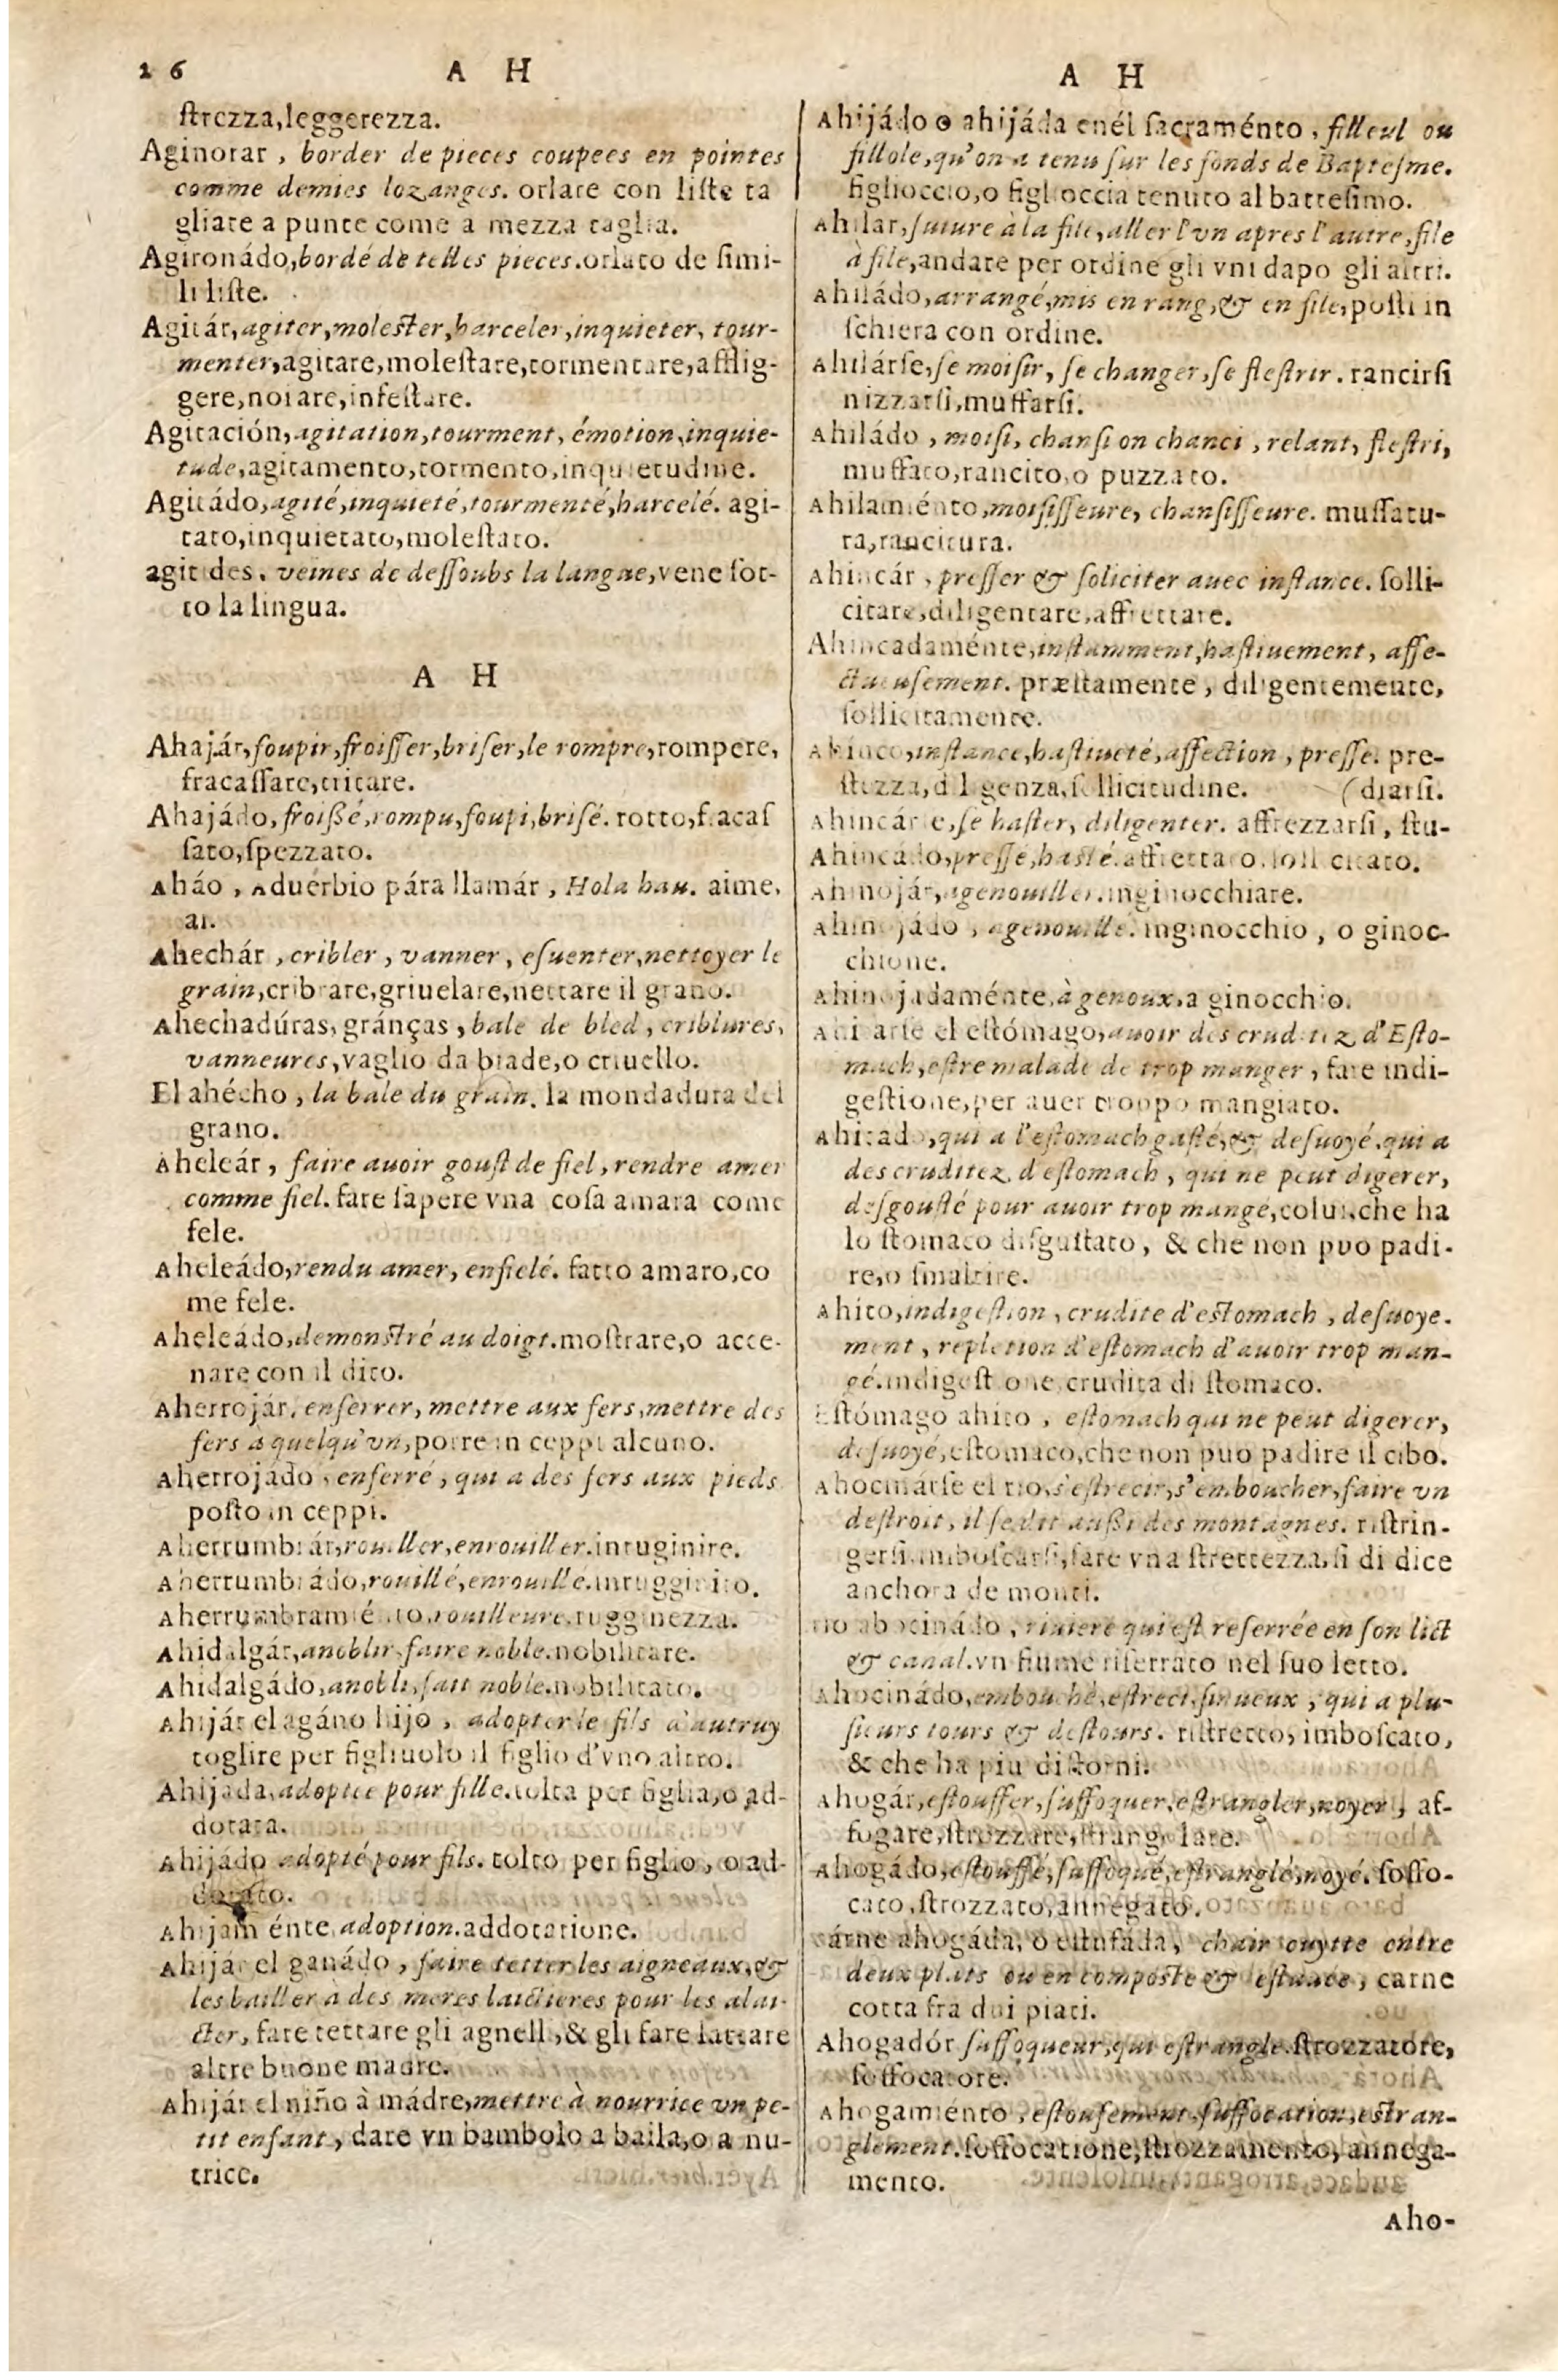 26 A H
ſtrezza,leggerezza.
Aginorar, border de pieces coupees en pointes
comme demies lozanges. orlare con liſte ta
gliate a punte come a mezza taglia.
Agironádo,bordé de telles pieces.orlato de ſimi-
li liſte.
Agitár,agiter,molester,harceler,inquieter, tour-
menter,agitare,moleſtare,tormentare,afflig-
gere,noiare,infeſtare.
Agitación,agitation,tourment, émotion,inquie-
tude,agitamento,tormento,inquietudine.
Agitádo,agité,inquieté,tourmenté,harcelé. agi-
tato,inquietato,moleſtato.
agitudes, veines de deſſoubs la langue,vene ſot-
to la lingua.
A H
Ahajár,foupir,froiſſer,briſer,le rompre,rompere,
fracaſſare,tritare.
Ahajádo,froißé,rompu,foupi,briſé. rotto,fracaſ
ſato,ſpezzato.
Aháo, Aduérbio pára llamár, Hola hau. aime,
ai.
Ahechár, cribler, vanner, eſuenter,nettoyer le
grain,cribrare,griuelare,nettare il grano.
Ahechadúras,gránças, bale de bled, criblures,
vanneures,vaglio da biade,o criuello.
El ahécho, la bale du grain. la mondadura del
grano.
Aheleár, faire auoir gouſt de fiel,rendre amer
comme fiel. fare ſapere vna coſa amara come
fele.
Aheleádo,rendu amer, enfielé. fatto amaro,co
me fele.
Aheleádo,demonstré au doigt.moſtrare,o acce-
nare con il dito.
Aherrojár, enferrer, mettre aux fers,mettre des
fers à quelqu'vn,porre in ceppi alcuno.
Aherrojado, enferré, qui a des fers aux pieds
poſto in ceppi.
Aherrumbrár,rouiller,enrouiller.inruginire.
Aherrumbrádo,rouillé,enrouillé.inrugginito.
Aherrumbramiénto,rouilleure.rugginezza.
Ahidalgár,anoblir,faire noble.nobilitare.
Ahidalgádo,anobli,fait noble.nobilitato.
Ahijár el agáno hijo, adopter le fils d'autruy
toglire per figliuolo il figlio d'vno altro.
Ahijada,adoptee pour fille.tolta per figlia,o ad-
dotata.
Ahijádo adopté pour fils. tolto per figlio, o ad-
dotato.
Ahijamiénte,adoption.addotatione.
Ahijár el ganádo, faire tetter les aigneaux,&
les bailler à des meres laictieres pour les alai-
cter, fare tettare gli agnelli,& gli fare lattare
altre buone madre.
Ahijár el niño à mádre,mettre à nourrice vn pe-
tit enfant, dare vn bambolo a baila,o a nu-
trice.
A H
Ahijádo o ahijáda enél ſacraménto, filleul ou
fillole,qu'on a tenu ſur les fonds de Bapteſme.
figlioccio,o figlioccia tenuto al batteſimo.
Ahilar,ſuiure à la file,aller l'vn apres l'autre,file
à file,andare per ordine gli vni dapo gli altri.
Ahiládo,arrangé,mis en rang,& en file,poſti in
ſchiera con ordine.
Ahilárſe,ſe moiſir, ſe changer,ſe fleſtrir. rancirſi
nizzarſi,muffarſi.
Ahiládo, moiſi, chanſi ou chanci, relant, fleſtri,
muffato,rancito,o puzzato.
Ahilamiénto,moiſiſſeure, chanſiſſeure. muffatu-
ra,rancitura.
Ahincár, preſſer & ſoliciter auec inſtance. ſolli-
citare,diligentare,affrettare.
Ahincadaménte,inſtamment,haſtiuement, affe-
ctueuſement. præſtamente, diligentemente,
ſollicitamente.
Ahínco,inſtance,haſtiueté,affection, preſſe. pre-
ſtezza,diligenza,ſollicitudine. (diarſi.
Ahincárſe,ſe haſter, diligenter. affrezzarſi, ſtu-
Ahincádo,preſſé,hasté.affrettato,ſollicitato.
Ahinojár,agenouiller.inginocchiare.
Ahinojádo, agenouillé. inginocchio, o ginoc-
chione.
Ahinojadaménte,à genoux.a ginocchio.
Ahitarſe el eſtómago,auoir des cruditez d'Eſto-
mach,eſtre malade de trop manger, fare indi-
geſtione,per auer troppo mangiato.
Ahitado,qui a l'eſtomach gaſté,& deſuoyé,qui a
des cruditez d'eſtomach, qui ne peut digerer,
deſgouſté pour auoir trop mangé,colui,che ha
lo ſtomaco diſguſtato, & che non puo padi-
re,o ſmaltire.
Ahito,indigeſtion, crudite d'estomach, deſuoye-
ment, repletion d'eſtomach d'auoir trop man-
gé.indigeſtione,crudita di ſtomaco.
Eſtómago ahito, eſtomach qui ne peut digerer,
deſuoyé,eſtomaco,che non puo padire il cibo.
Ahocinárſe el rio,s'eſtrecir,s'emboucher,faire vn
deſtroit, il ſe dit außi des montagnes. riſtrin-
gerſi,imboſcarſi,fare vna ſtrettezza,ſi di dice
anchora de monti.
rio ahocinádo, riuiere qui eſt reſerrée en ſon lict
& canal.vn fiume riſerrato nel ſuo letto.
Ahocinádo,embouché,eſtreci,ſinueux, qui a plu-
ſieurs tours & deſtours. riſtretto, imboſcato,
& che ha piu diſtorni.
Ahogár,eſtouffer,ſuffoquer,estrangler,noyer, af-
fogare,ſtrozzare,ſtrangolare.
Ahogádo,eſtouffé,ſuffoqué,eſtranglé,noyé. ſoffo-
cato,ſtrozzato,annegato.
cárne ahogáda, o eſtufáda, chair cuytte entre
deux plats ou en composte & eſtuuée, carne
cotta fra dui piati.
Ahogadór ſuffoqueur,qui eſtrangle.ſtrozzatore,
ſoffocatore.
Ahogamiénto, eſtouſement,ſuffocation,estran-
glement.ſoffocatione,ſtrozzamento, annega-
mento.
Aho-